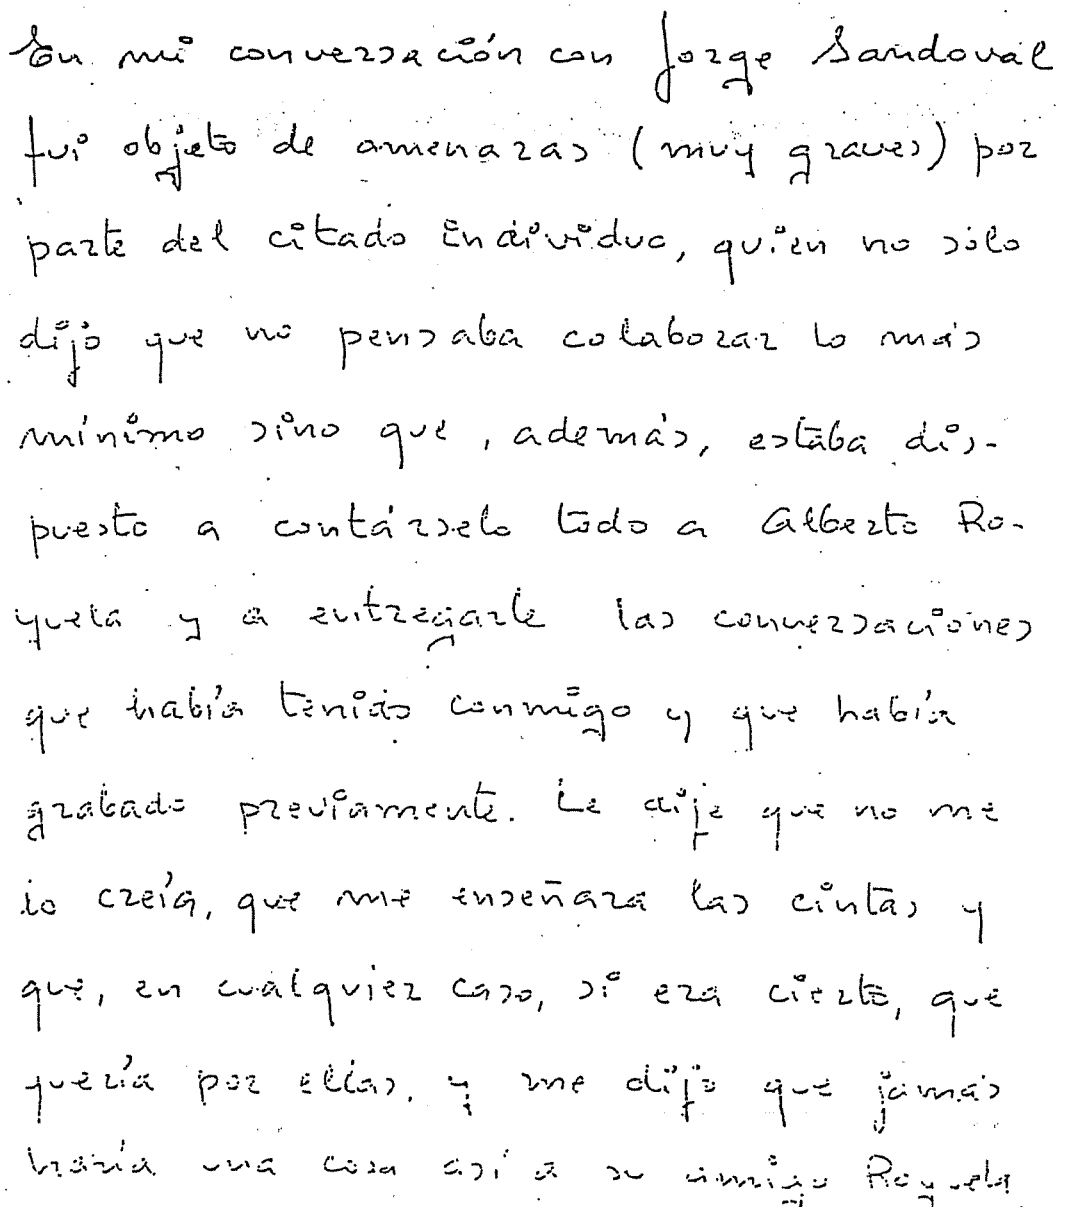 En mi conversación con Jorge Sandoval
fui objeto de amenazas (muy graves) por
parte del citado individuo, quien no sólo
dijo que no pensaba colaborar lo más
mínimo sino que, además, estaba dis-
puesto a contárselo todo a Alberto Ro-
quela y a entregarle las conversaciones
que había tenido conmigo y que había
grabado previamente. Le dije que no me
lo creía, que me enseñara las cintas y
que, en cualquier caso, si era cierto, que
quería por ellas, y me dijo que jamás
haría una cosa así a su amigo Roquela